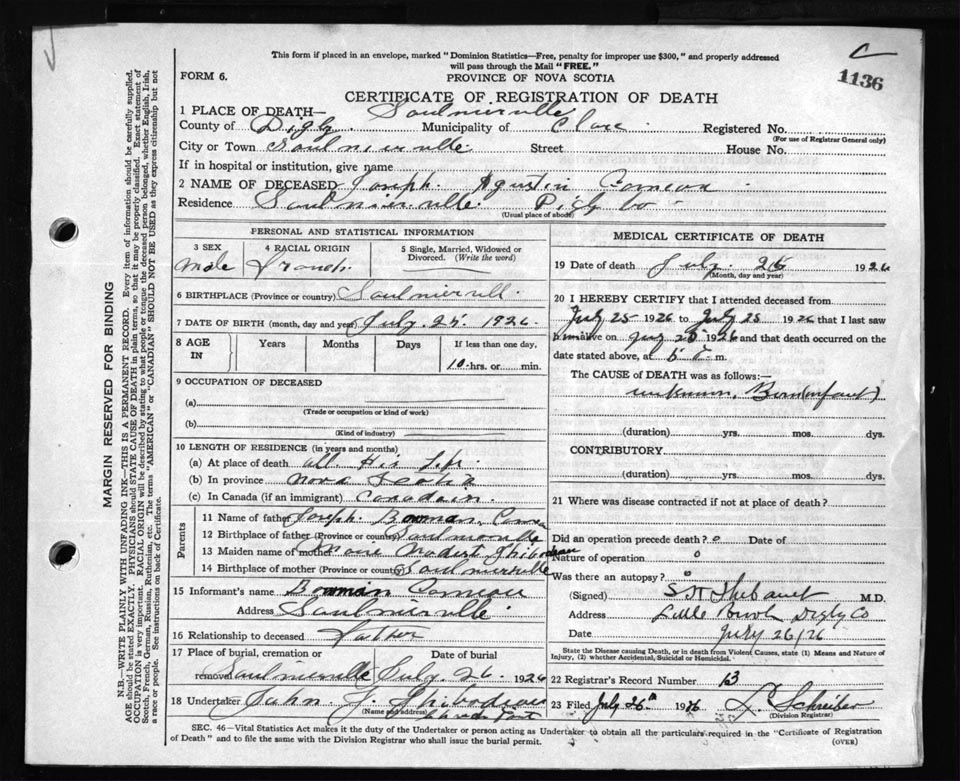 This form if placed in an envelope, marked "Dominion Statistics—Free, penalty for improper use $300," and properly addressed
will pass through the Mail "FREE."
FORM 6.
PROVINCE OF NOVA SCOTIA
1136
CERTIFICATE OF REGISTRATION OF DEATH
1 PLACE OF DEATH— Saulnierville
County of Digby Municipality of Clare Registered No.
(For use of Registrar General only)
City or Town Saulnierville Street House No.
If in hospital or institution, give name
2 NAME OF DECEASED Joseph Agustin Comeau
Residence Saulnierville Digby Co
(Usual place of abode)
PERSONAL AND STATISTICAL INFORMATION
3 SEX 4 RACIAL ORIGIN 5 Single, Married, Widowed or
Divorced. (Write the word)
Male French
6 BIRTHPLACE (Province or country) Saulnierville
7 DATE OF BIRTH (month, day and year) July 25 1926
8 AGE IN Years Months Days If less than one day,
10 hrs. or min.
9 OCCUPATION OF DECEASED
(a)
(Trade or occupation or kind of work)
(b)
(Kind of industry)
10 LENGTH OF RESIDENCE (in years and months)
(a) At place of death all His Life
(b) In province Nova Scotia
(c) In Canada (if an immigrant) Canadain
Parents
11 Name of father Joseph Bowman Comeau
12 Birthplace of father (Province or country) Saulnierville
13 Maiden name of mother Modest Thibodeau
14 Birthplace of mother (Province or country) Saulnierville
15 Informant's name Bowman Comeau
Address Saulnierville
16 Relationship to deceased Father
17 Place of burial, cremation or Date of burial
removal Saulnierville July 26 1926
18 Undertaker John J. Thibodeau
(Name and address)
MEDICAL CERTIFICATE OF DEATH
19 Date of death July 25 1926
(Month, day and year)
20 I HEREBY CERTIFY that I attended deceased from
July 25 1926 to July 25 1926 that I last saw
him alive on July 25 1926 and that death occurred on the
date stated above, at m.
The CAUSE OF DEATH was as follows:—
unknown. (infant)
(duration) yrs. mos. dys.
CONTRIBUTORY
(duration) yrs. mos. dys.
21 Where was disease contracted if not at place of death?
Did an operation precede death? o Date of
Nature of operation o
Was there an autopsy? o
(Signed) M.D.
Address Little Brook Digby Co
Date July 26/26
State the Disease causing Death, or in death from Violent Causes, state (1) Means and Nature of
Injury, (2) whether Accidental, Suicidal or Homicidal.
22 Registrar's Record Number 63
23 Filed July 26th 1926 Schreiber
(Division Registrar)
SEC. 46—Vital Statistics Act makes it the duty of the Undertaker or person acting as Undertaker to obtain all the particulars required in the "Certificate of Registration
of Death" and to file the same with the Division Registrar who shall issue the burial permit. (OVER)
MARGIN RESERVED FOR BINDING
N.B.—WRITE PLAINLY WITH UNFADING INK—THIS IS A PERMANENT RECORD. Every item of information should be carefully supplied.
AGE should be stated EXACTLY. PHYSICIANS should STATE CAUSE OF DEATH in plain terms, so that it may be properly classified. Exact statement of
OCCUPATION is very important. RACIAL ORIGIN will be described by stating to what people or tongue the deceased person belonged, whether English, Irish,
Scotch, French, German, Russian, Ruthenian, etc. The terms "AMERICAN" or "CANADIAN" SHOULD NOT BE USED as they express citizenship but not
a race or people. See instructions on back of Certificate.